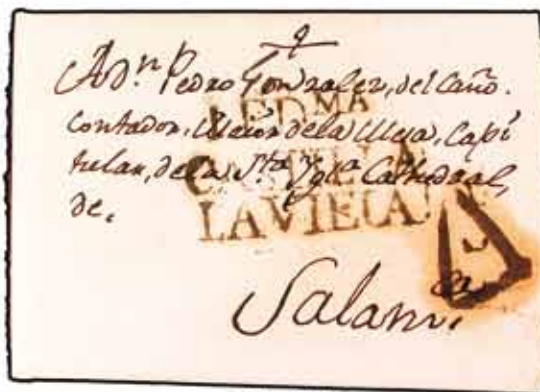 A Dⁿ Pedro Gonzalez, del Caño.
Contador, Maior de la Mesa, Capi
tular, de la Sᵗᵃ Ygᵃ Cathedral,
de,
LEDMA
CASTILLA
LA VIEIA.
Salamᶜᵃ.